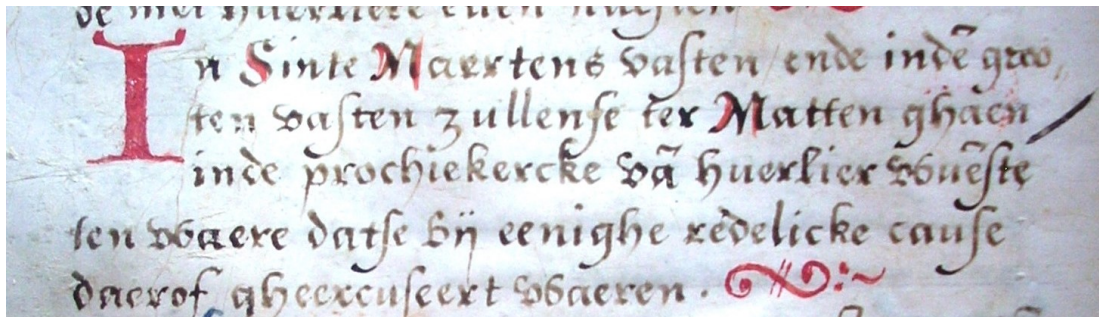 de met huerliere even naesten
In Sinte Maertens vasten ende indē groo,
ten vasten zullense ter Matten ghaen /
inde prochiekercke vā huerlier wuēste
ten waere datse bij eenighe redelicke cause
daerof gheexcuseert waeren .